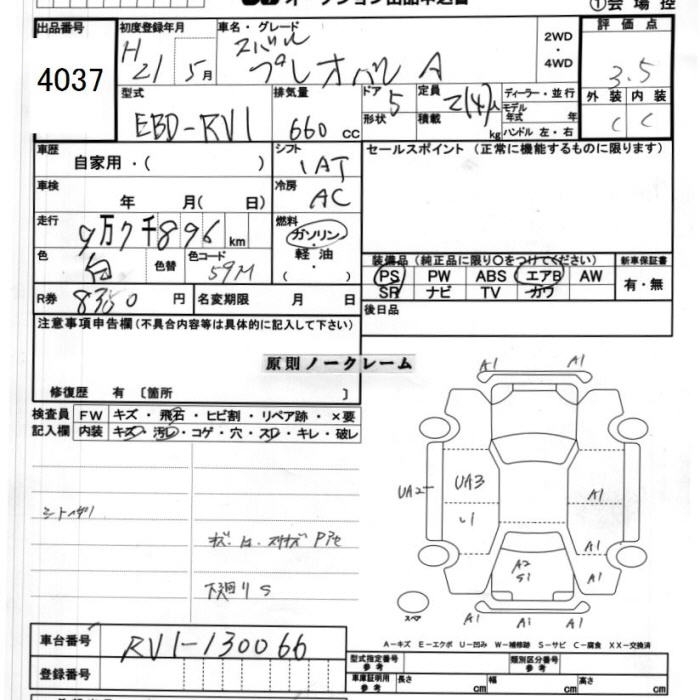 ①会場控
出品番号
4037
初度登録年月
H
21 5月
車名・グレード
スバル
プレオバン A
2WD
・
4WD
評価点
3.5
外装 内装
C C
型式
EBD-RV1
排気量
660 cc
ドア 形状
5
定員 積載
2(4)人
kg
ディーラー・並行
モデル年式 年
ハンドル 左・右
車歴
自家用・( )
シフト
IAT
セールスポイント (正常に機能するものに限ります)
車検
年 月( 日)
冷房
AC
走行
9万7千896 km
燃料
ガソリン
・
軽油
・
( )
色
白
色替
色コード
59M
装備品(純正品に限り○をつけてください)
PS PW ABS エアB AW
SR ナビ TV カワ
新車保証書
有・無
R券
8350 円
名変期限 月 日
後日品
注意事項申告欄(不具合内容等は具体的に記入して下さい)
原則ノークレーム
修復歴 有 〔箇所 〕
検査員記入欄
FW キズ・飛石・ヒビ割・リペア跡・×要
内装 キズ・汚レ・コゲ・穴・スレ・キレ・破レ
下廻りS
A1 A1
UA2
UA3
A1
A1
A2
S1
A1
スペア
A1 A1 A1
A-キズ E-エクボ U-凹み W-補修跡 S-サビ C-腐食 XX-交換済
車台番号
RV1-130066
登録番号
型式指定番号 参考
類別区分番号 参考
車庫証明用 参考
長さ cm 幅 cm 高さ cm